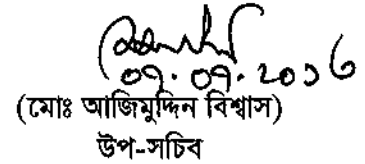 ০৭.০৭.২০১৬
(মোঃ আজিমুদ্দিন বিশ্বাস)
উপ-সচিব